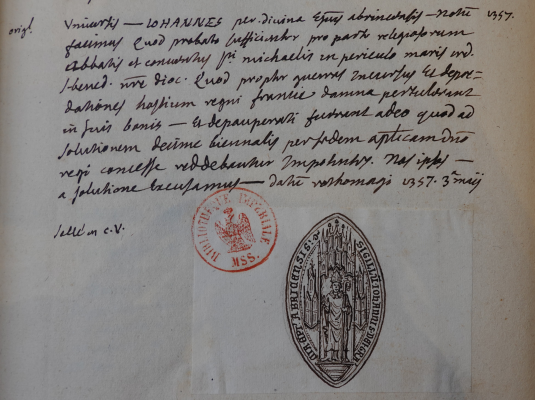 origl. Universis — IOHANNES permissione divina Epus abrincensis — Notum 1357.
facimus Quod probato sufficienter pro parte religiosorum
abbatis et conventus Sti michaelis in periculo maris ord.
s. bened. nre dioc. Quod propter guerras Incursus Et depre-
dationes hostium regni francie damna pertulerunt
in suis bonis — Et depauperati fuerunt adeo quod ad
solutionem decime biennalis per sedem aplicam dno
regi concesse reddebantur Impotentes. Nos ipsos —
a solutione Excusamus — datum rothomagi 1357. 3a maij
scellé en c. V.
BIBLIOTHEQUE IMPERIALE
MSS.
SIGILLUM IOHANNIS DEI GRA
EPI ABRICENSIS